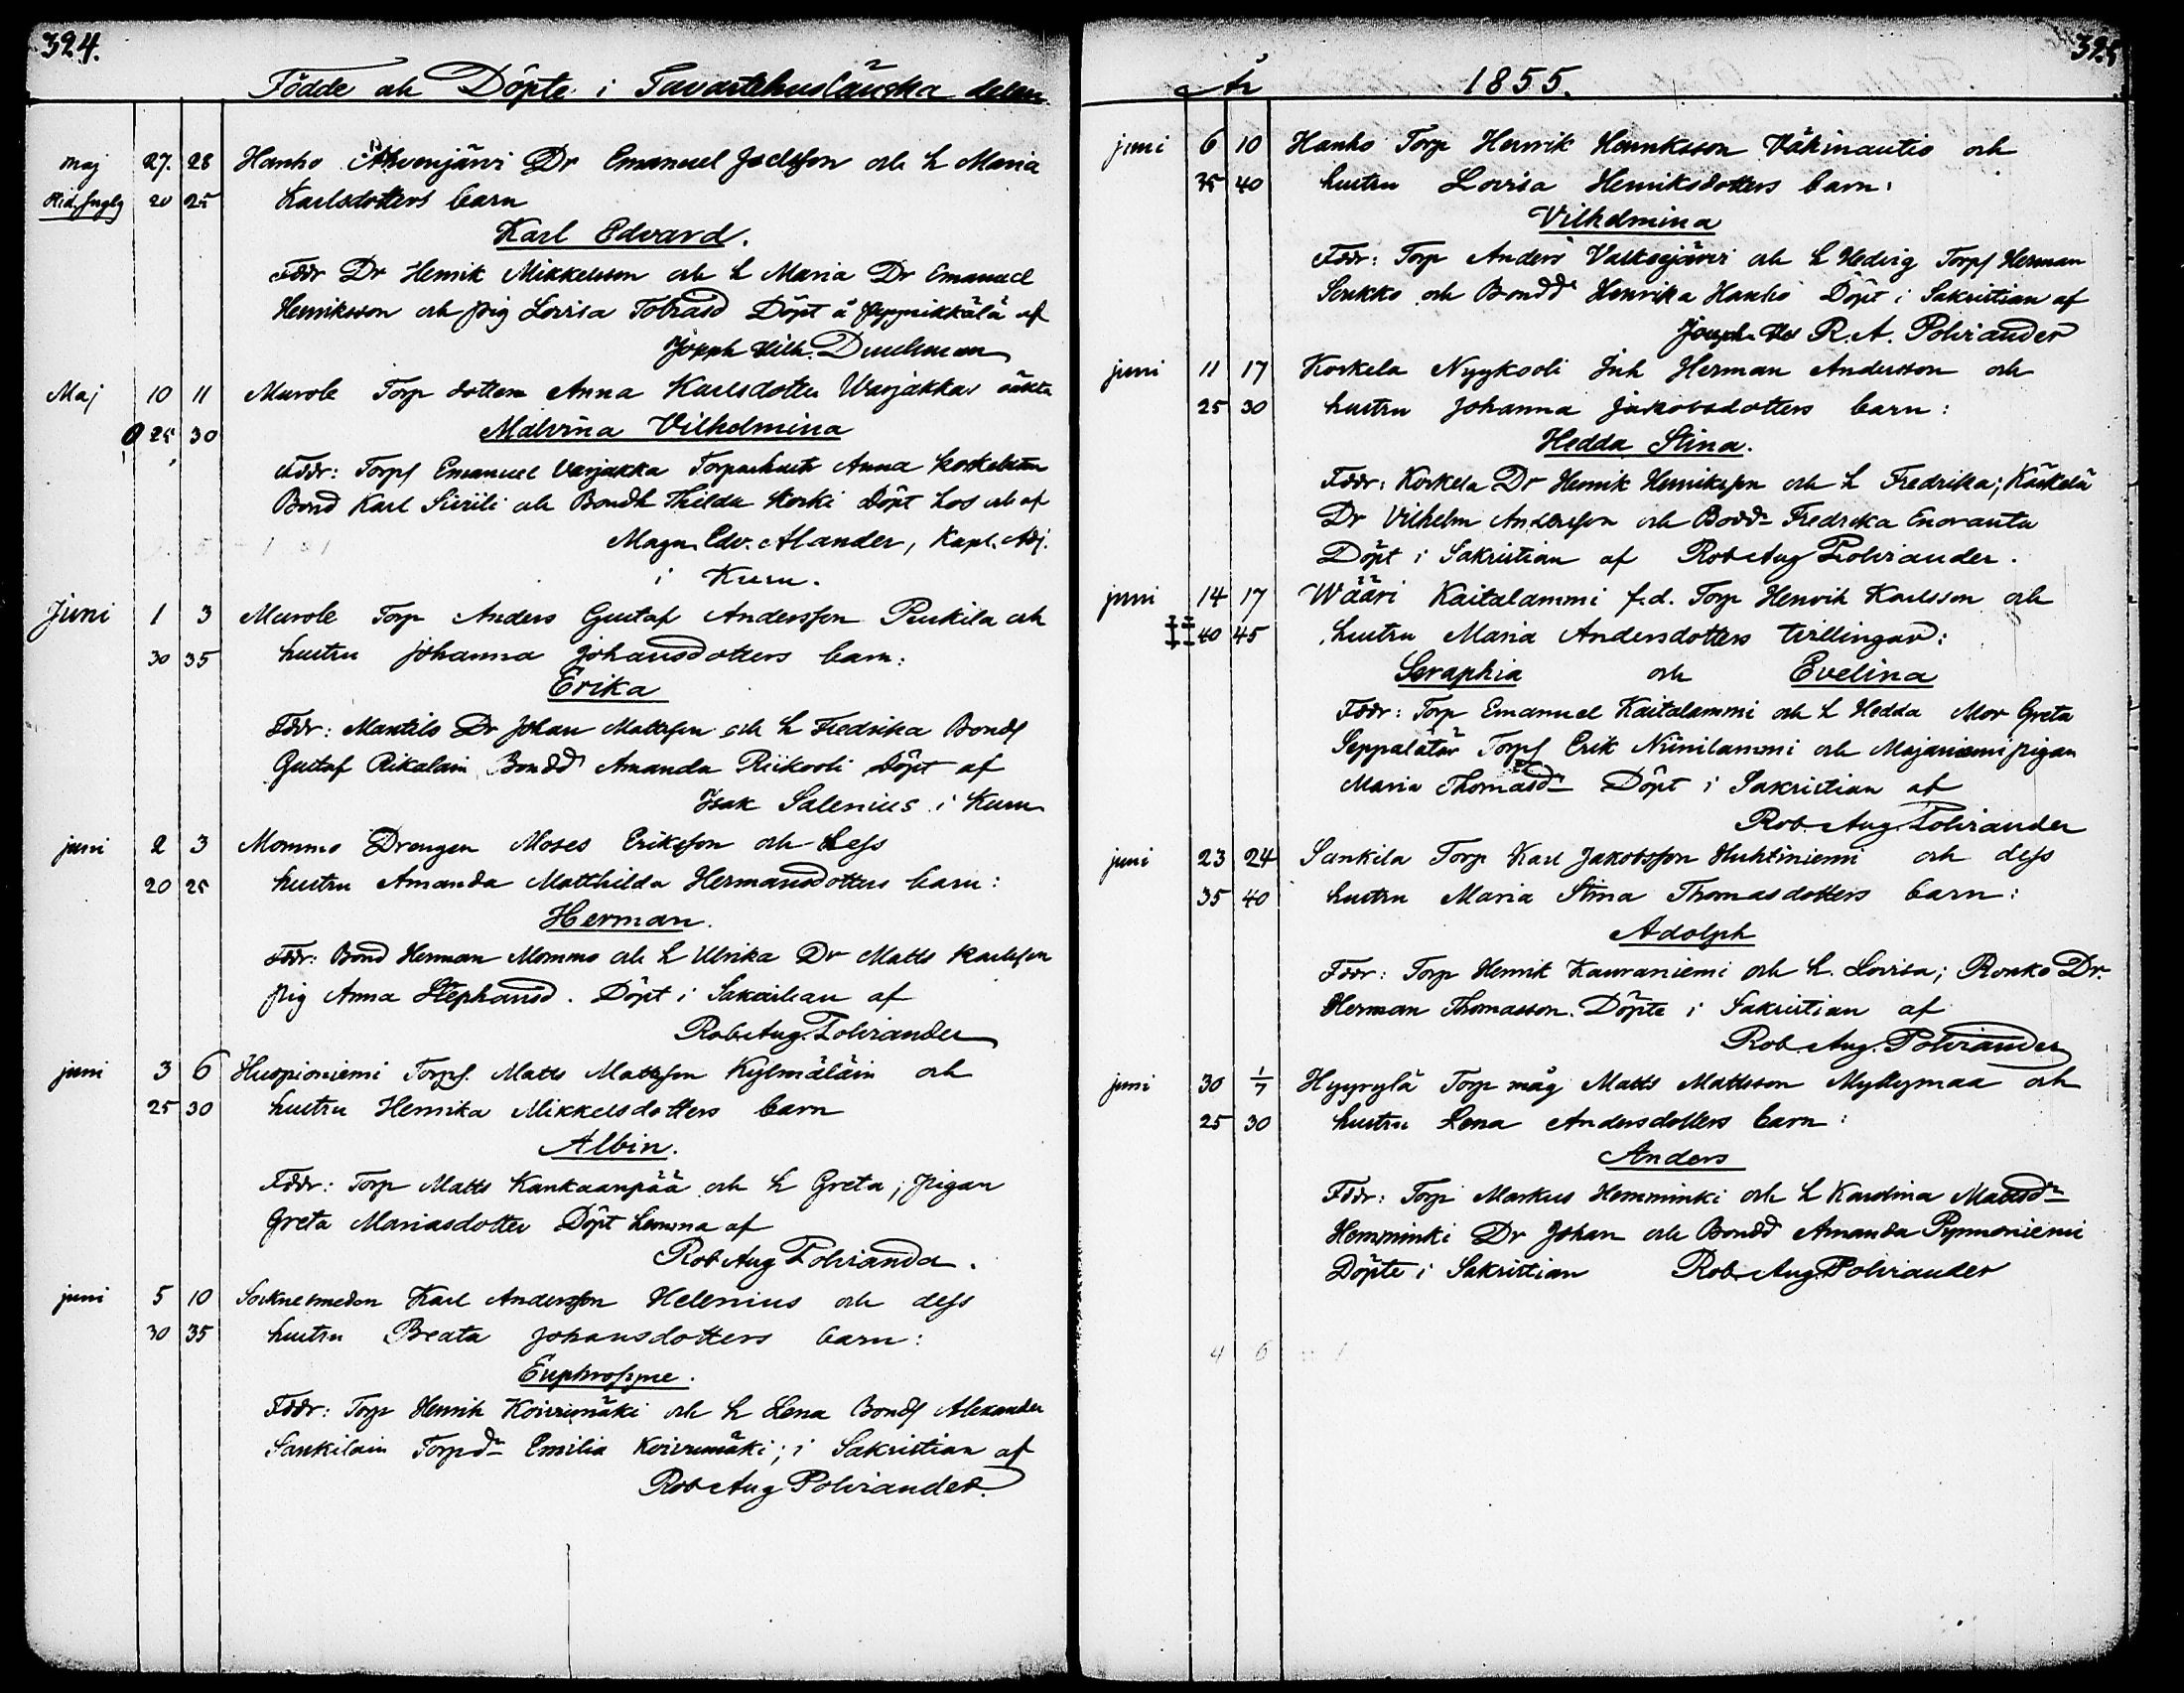 324.
Födde och Döpte i Tavastehuslänska delen
maj 27. 28 Hanho Ahvenjärvi Dr Emanuel Joelsson och h Maria
20 25 Karlsdotters barn
Karl Edvard.
Fddr Dr Henrik Mikkelsson och h Maria Dr Emanuel
Henriksson och pig Lovisa Tobiasd Döpt å Pyynikkälä af
Joseph Vilh. Duuhman
Maj 10 11 Murole Torp dottern Anna Karlsdotter Warjakkas oäkta
25 30 Malvina Vilhelmina
Fddr: Torpf Emanuel Varjakka Torparhustr Anna
Bond Karl Siviili och Bondh Thilda Koski Döpt hos och af
Magn. Edv. Alander, Kapl. Adj.
i Kuru.
Juni 1 3 Murole Torp Anders Gustaf Andersson Peukila och
30 35 hustru Johanna Johansdotters barn:
Erika
Fddr: Mantils Dr Johan Mattsson och h Fredrika Bondf
Gustaf Rikalain Bondd Amanda Riikooli Döpt af
Isak Salenius i Kuru
juni 2 3 Mommo Drengen Moses Eriksson och dess
20 25 hustru Amanda Matthilda Hermansdotters barn:
Herman.
Fddr: Bond Herman Mommo och h Ulrika Dr Matts Karlsson
pig Anna Stephansd. Döpt i Sakristian af
Rob. Aug. Polviander
juni 3 6 Huopioniemi Torpf. Matts Mattsson Kylmäläin och
25 30 hustru Henrika Mikkelsdotters barn
Albin.
Fddr: Torp Matts Kankaanpää och h Greta; pigan
Greta Mariasdotter Döpt hemma af
Rob Aug Polviander.
juni 5 10 Socknesmeden Karl Andersson Helenius och dess
30 35 hustru Beata Johansdotters barn:
Euphrosyne.
Fddr: Torp Henrik Koivumäki och h Lena Bondf Alexander
Sankilain Torpdr Emilia Koivumäki; i Sakristian af
Rob Aug Polviander.
325
År 1855.
juni 6 10 Hanho Torp Henrik Henriksson Vähinautio och
35 40 hustru Lovisa Henriksdotters barn:
Vilhelmina
Fddr: Torp Anders Valkeejärvi och h Hedvig Torpf Herman
Senkko och Bondd Henrika Hanho Döpt i Sakristian af
R. A. Polviander
juni 11 17 Korkela Nyykooli Inh Herman Andersson och
25 30 hustru Johanna Jakobsdotters barn:
Hedda Stina.
Fddr: Korkela Dr Henrik Henriksson och h Fredrika; Käskelä
Dr Vilhelm Andersson och Bondd Fredrika Enoranta
Döpt i Sakristian af Rob Aug Polviander.
juni 14 17 Wääri Kaitalammi f.d. Torp Henrik Karlsson och
40 45 hustru Maria Andersdotters tvillingar:
Seraphia och Evelina
Fddr: Torp Emanuel Kaitalammi och h Hedda Mor Greta
Seppalätär Torpf Erik Niinilammi och Majaniemi pigan
Maria Thomasdr Döpt i Sakristian af
Rob. Aug. Polviander
juni 23 24 Sankila Torp Karl Jakobsson Huhtiniemi och dess
35 40 hustru Maria Stina Thomasdotters barn:
Adolph
Fddr: Torp Henrik Kauraniemi och h. Lovisa; Ronko Dr.
Herman Thomasson. Döpte i Sakristian af
Rob. Aug. Polviander
juni 30 1/7 Hyyrylä Torp måg Matts Mattsson Myllymaa och
25 30 hustru Lena Andersdotters barn:
Anders
Fddr: Torp Markus Hemminki och h Karolina Mattsdr
Hemminki Dr Johan och Bondd Amanda Pynnoniemi
Döpte i Sakristian Rob. Aug. Polviander